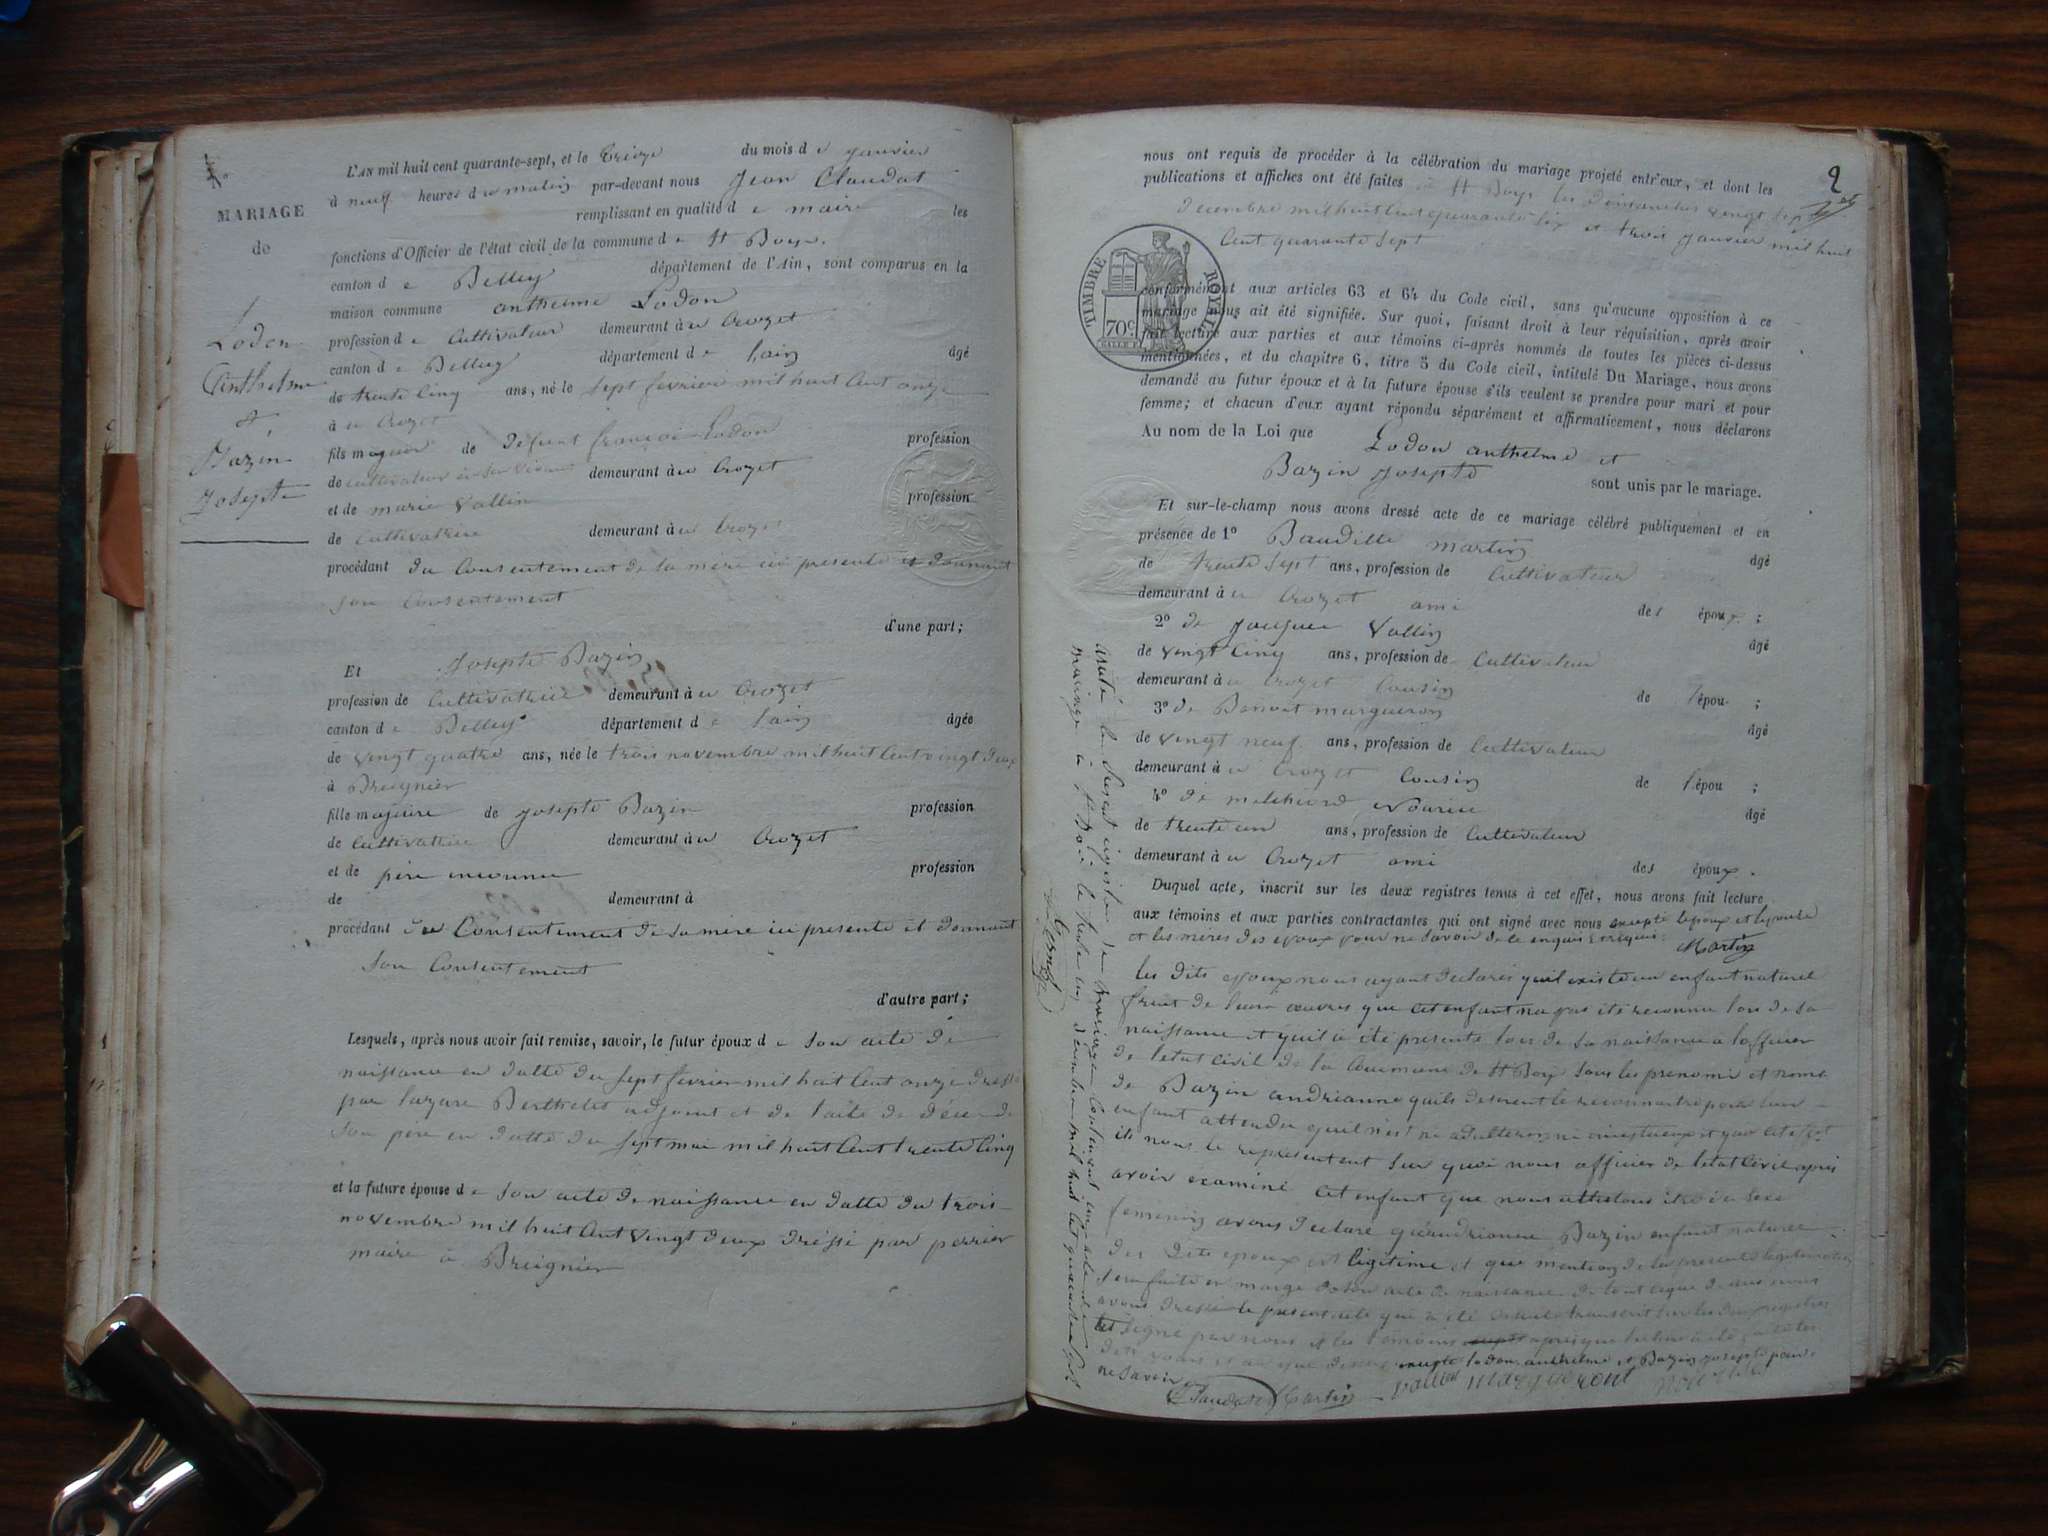 MARIAGE
de
Lodon
Anthelme
et
Bazin
Josepte
L'AN mil huit cent quarante-sept, et le treize du mois de janvier
à neuf heures du matin par-devant nous Jean Claudat
remplissant en qualité de maire les
fonctions d'Officier de l'état civil de la commune de St Boys.
canton de Belley département de l'Ain, sont comparus en la
maison commune anthelme Lodon
profession de Cultivateur demeurant à Crozet
canton de Belley département de l'ain âgé
de trente cinq ans, né le sept fevrier mil huit cent onze
à Crozet
fils majeur de defunt françois Lodon profession
de cultivateur en son vivant demeurant à Crozet
et de marie Vallin profession
de cultivatrice demeurant à Crozet
procédant du Consentement de sa mère ici presente et donnant
son Consentement
d'une part;
Et Josepte Bazin
profession de Cultivatrice demeurant à Crozet
canton de Belley département de l'ain âgée
de vingt quatre ans, née le trois novembre mil huit cent vingt deux
à Breignier
fille majeure de josepte Bazin profession
de Cultivatrice demeurant à Crozet
et de père inconnu profession
de demeurant à
procédant du Consentement de sa mère ici presente et donnant
son Consentement
d'autre part;
Lesquels, après nous avoir fait remise, savoir, le futur époux de son acte de
naissance en datte du sept fevrier mil huit cent onze dressé
par lazare Berthelet adjoint et de l'acte de décès de
son père en datte du sept mai mil huit cent trente cinq
et la future épouse de son acte de naissance en datte du trois
novembre mil huit cent vingt deux dréssé par perrier
maire à Breignier
2
nous ont requis de procéder à la célébration du mariage projeté entr'eux, et dont les
publications et affiches ont été faites à St Boys les dimanches vingt sept
decembre mil huit cent quarante six et trois janvier mil huit
cent quarante sept
TIMBRE ROYAL
70c
conformément aux articles 63 et 64 du Code civil, sans qu'aucune opposition à ce
mariage nous ait été signifiée. Sur quoi, faisant droit à leur réquisition, après avoir
fait lecture aux parties et aux témoins ci-après nommés de toutes les pièces ci-dessus
mentionnées, et du chapitre 6, titre 5 du Code cicil, intitulé Du Mariage, nous avons
demandé au futur époux et à la future épouse s'ils veulent se prendre pour mari et pour
femme; et chacun d'eux ayant répondu séparément et affirmativement, nous déclarons
Au nom de la Loi que Lodon anthelme et
Bazin josepte sont unis par le mariage.
Et sur-le-champ nous avons dressé acte de ce mariage célébré publiquement et en
présence de 1º Baudille martin âgé
de trente sept ans, profession de Cultivateur
demeurant à Crozet ami des époux;
2º de jacques Vallin âgé
de vingt cinq ans, profession de Cultivateur
demeurant à Crozet Cousin de l'épou;
3º de Benoit margueron âgé
de vingt neuf ans, profession de Cultivateur
demeurant à Crozet Cousin de l'épou;
4º de melchiord Nourice âgé
de trente un ans, profession de Cultivateur
demeurant à Crozet ami des époux.
Duquel acte, inscrit sur les deux registres tenus à cet effet, nous avons fait lecture
aux témoins et aux parties contractantes qui ont signé avec nous excepté l'epoux et l'epouse
et les mères des epoux pour ne savoir de ce enquis et requis. Martin
les dits epoux nous ayant declarés quil existe un enfant naturel
fruit de leurs œuvres que cet enfant na pas été reconnu lors de sa
naissance et quil a été presenté lors de sa naissance a lofficier
de letat civil de la Commune de St Boys sous les prenoms et noms
de Bazin andrianne quils desirent le reconnaitre pour leur
enfant attendu quil n'est ni adulterin ni incestueux et que cet
ils nous le representent sur quoi nous officier de letat civil après
avoir examiné cet enfant que nous attestons être du sexe
femenin avons declaré qu'andrianne Bazin enfant naturel
des dits epoux est legitime et que mention de la presente legitimation
sera faite en marge de son acte de naissance de tout ce que dessus nous
avons dressé le present acte qui a été de suite transcrit sur les deux registres
et signé par nous et les temoins après que lecture
excepté lodon anthelme et Bazin josepte pour
ne savoir
Claudat Martin Vallin Margueront